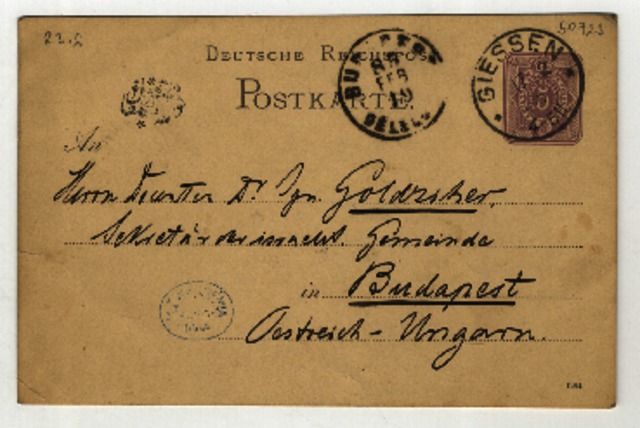 22.2
50723
DEUTSCHE REICHSPOST
POSTKARTE
BUDAPEST
FEB
GIESSEN
An
Herrn Docenten Dr Ign. Goldziher,
Sekretär der israelit. Gemeinde
in Budapest
Oestreich-Ungarn.